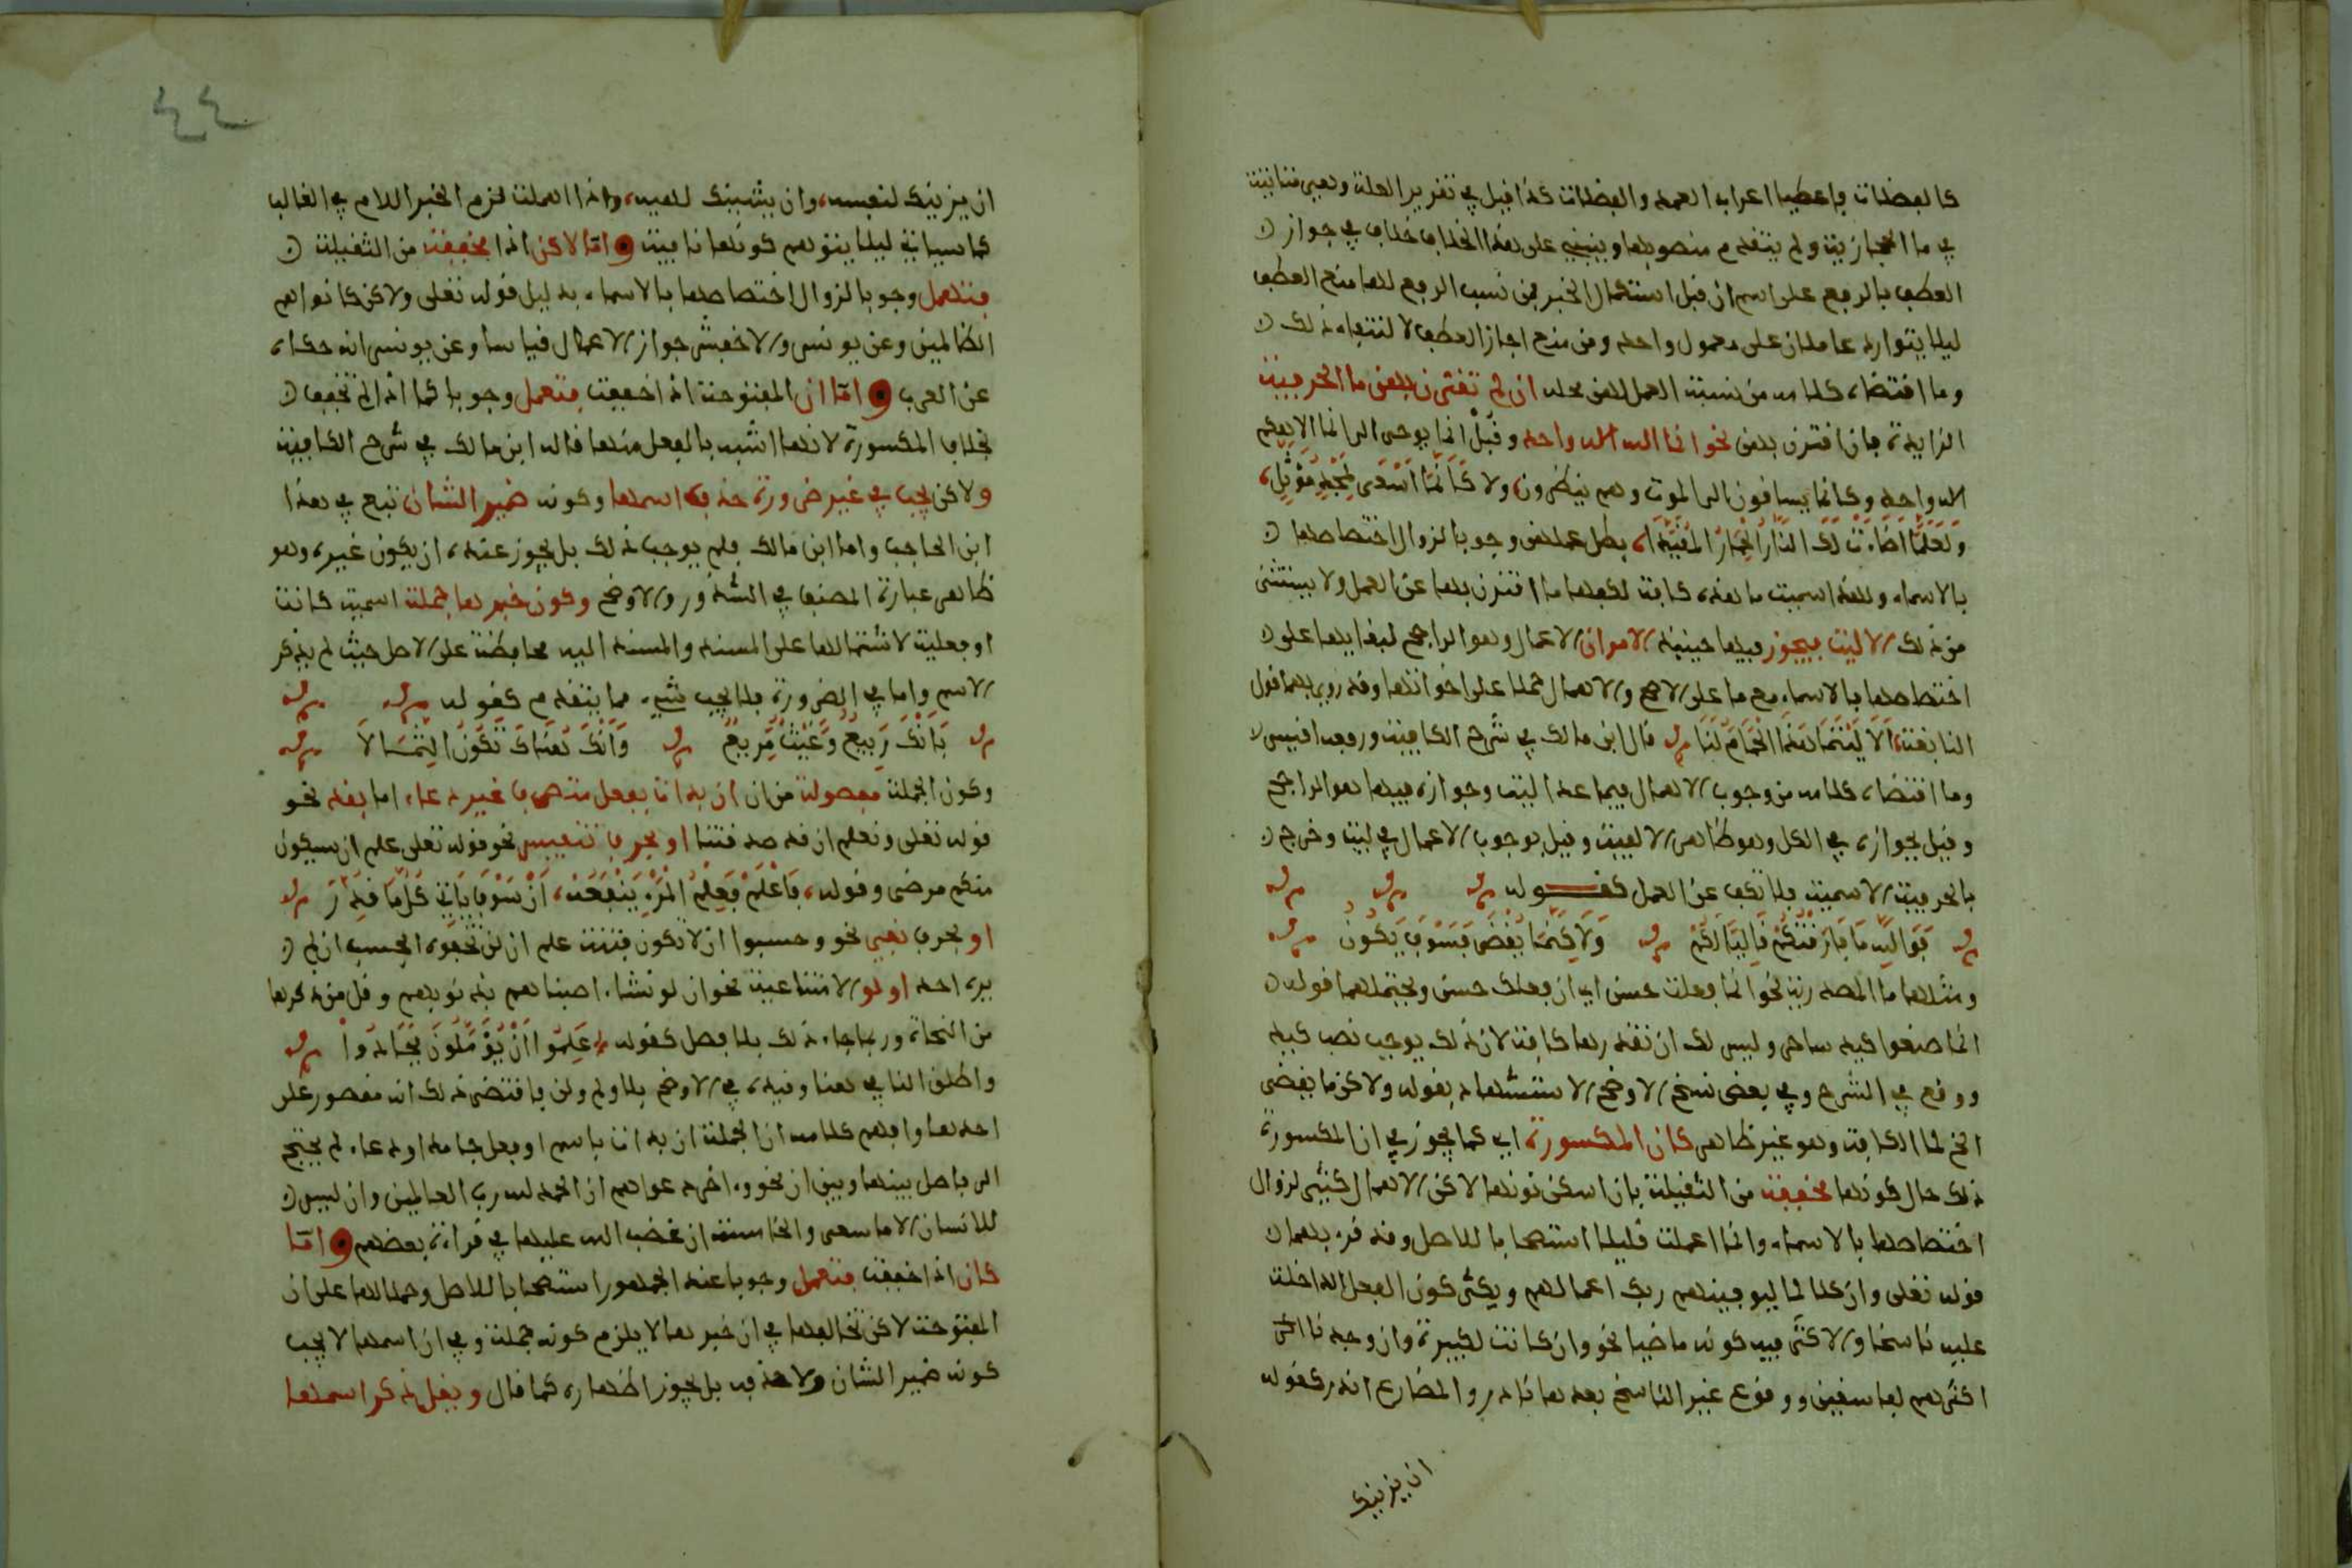 كالفضلات فاعطيا اعراب العمد والفضلات كذا قيل في تقرير العلة وهي منافية
في ما الحجازية ولم يتقدم منصوبها وينبني على هذا الخلاف خلاف في جواز
العطف بالرفع على اسم ان قبل استكمال الخبر فمن نسب الرفع لها منع العطف
ليلا يتوارد عاملان على معمول واحد ومن منع اجاز العطف لانتفاء ذلك
وما اقتضاه كلامه من نسبة العمل لهن محله ان لم تقترن بهن ما الحرفية
الزايدة فان اقترن بهن نحو انما الله اله واحد وقل انما يوحى الي انما الاهكم
اله واحد وكانما يساقون الى الموت وهم ينظرون ولا كَأَنَّمَا أَسْعَى لِمَجْدٍ مُؤَثَّلِ
وَلَعَلَّمَا أَضَاءَتْ لَكَ النَّارُ الْحِمَارَ الْمُقَيَّدَا، بطل عملهن وجوبا لزوال اختصاصها
بالاسماء ولهذا سميت ما هذه كافة لكفها ما اقترن بها عن العمل ولا يستثنى
من ذلك الا ليت فيجوز فيها حينيذ الامران الاعمال وهو الراجح لبقايها على
اختصاصها بالاسماء مع ما على الاصح والاهمال حملا على اخواتها وقد روي بهما قول
النابغة، أَلَا لَيْتَمَا هَذَا الْحَمَامَ لَنَا قال ابن مالك في شرح الكافية ورفعه اقيس
وما اقتضاه كلامه من وجوب الاهمال فيما عدا ليت وجوازه فيها هو الراجح
وقيل بجوازه في الكل وهو ظاهر الالفية وقيل بوجوب الاعمال في ليت وخرج
بالحرفية الاسمية فلا تكف عن العمل كقوله
فَوَاللَّهِ مَا فَارَقْتُكُمْ قَالِيًا لَكُمْ وَلَكِنَّمَا يُقْضَى فَسَوْفَ يَكُونُ
ومثلها ما المصدرية نحو انما فعلت حسن اي ان فعلك حسن ويحتملهما قوله
انما صنعوا كيد ساحر وليس لك ان تقدرها كافة لان ذلك يوجب نصب كيد
ووقع في الشرح وفي بعض نسخ الاوضح الاستشهاد بقوله ولاكن ما يقضى
الخ لما الكافة وهو غير ظاهر كان المكسورة اي كما يجوز في ان المكسورة
ذلك حال كونها مخففة من الثقيلة بان اسكن نونها لاكن الاهمال كثير لزوال
اختصاصها بالاسماء وانما اعملت قليلا استصحابا للاصل وقد قرء بهما
قوله تعلى وان كلا لما ليوفينهم ربك اعمالهم ويكثر كون الفعل الداخلة
عليه ناسخا والاكثر فيه كونه ماضيا نحو وان كانت لكبيرة وان وجدنا اكثر
اكثرهم لفاسقين ووقوع غير الناسخ بعدها نادر والمضارع اندر كقوله
ان يزينك
٤٤
ان يزينك لنفسك، وان يشينك لهيه، واذا اهملت لزم الخبر اللام في الغالب
كما سياتي ليلا يتوهم كونها نافية واما لاكن اذا مخففة من الثقيلة
فتهمل وجوبا لزوال اختصاصها بالاسماء بدليل قوله تعلى ولاكن كانوا هم
الظالمين وعن يونس والاخفش جواز الاعمال قياسا وعن يونس انه حكاه
عن العرب واما ان المفتوحة اذا خففت فتعمل وجوبا كما اذا لم تخفف
بخلاف المكسورة لانها اشبه بالفعل منها قاله ابن مالك في شرح الكافية
ولاكن يجب في غير ضرورة حذف اسمها وكونه ضمير الشان تبع في هذا
ابن الحاجب واما ابن مالك فلم يوجب ذلك بل يجوز عنده ان يكون غيره وهو
ظاهر عبارة المصنف في الشذور والاوضح وكون خبرها جملة اسمية كانت
او فعلية لاشتمالها على المسند والمسند اليه محافظة على الاصل حيث لم يذكر
الاسم واما في الضرورة فلا يجب شيء مما يتقدم كقوله
بَأَنْكَ رَبِيعٌ وَغَيْثٌ مَرِيعٌ وَأَنْكَ هُنَاكَ تَكُونُ الثِّمَالَا
وكون الجملة مفصولة من ان ان بدات بفعل متصرف غير دعاء اما بقد نحو
قوله تعلى ونعلم ان قد صدقتنا او بحرف تنفيس نحو قوله تعلى علم ان سيكون
منكم مرضى وقوله، فَاعْلَمْ فَعِلْمُ الْمَرْءِ يَنْفَعُهُ، أَنْ سَوْفَ يَاتِي كُلُّ مَا قُدِرَ
او بحرف نفي نحو وحسبوا ان لا تكون فتنة علم ان لن تحصوه ايحسب ان لم
يره احد او لو الامتناعية نحو ان لو نشاء اصبناهم بذنوبهم وقل من ذكرها
من النحاة وربما جاء ذلك بلا فصل كقوله عَلِمُوا أَنْ يُؤَمَّلُونَ فَجَادُوا
واطلق النافي هنا وقيده في الاوضح بلا ولم ولن فاقتضى ذلك انه مقصور على
احدها وافهم كلامه ان الجملة ان بدات باسم او فعل جامد او دعاء لم يحتج
الى فاصل بينها وبين ان نحو واخر دعواهم ان الحمد لله رب العالمين وان ليس
للانسان الا ما سعى والخامسة ان غضب الله عليها في قراءة بعضهم واما
كان اذا خففت فتعمل وجوبا عند الجمهور استصحابا للاصل وحملا لها على ان
المفتوحة لاكن تخالفها في ان خبرها لا يلزم كونه جملة وفي ان اسمها لا يجب
كونه ضمير الشان ولا حذفه بل يجوز اظهاره كما قال ويقل ذكر اسمها